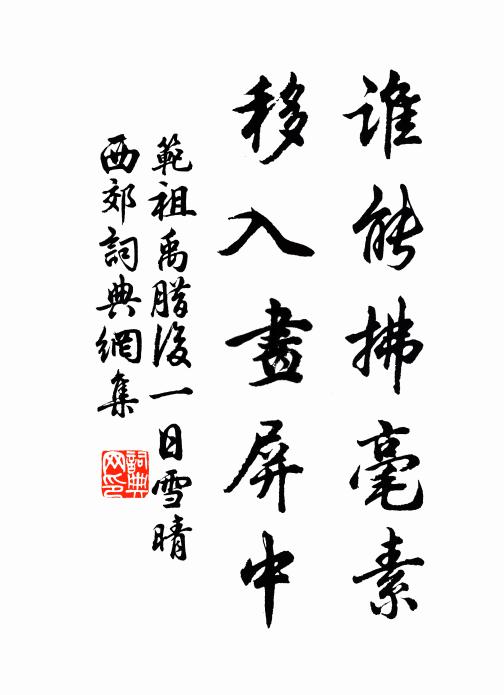 誰能拂毫素
移入畫屏中
範祖禹臘後一日雪晴
西郊詞典網集
詞典
网印